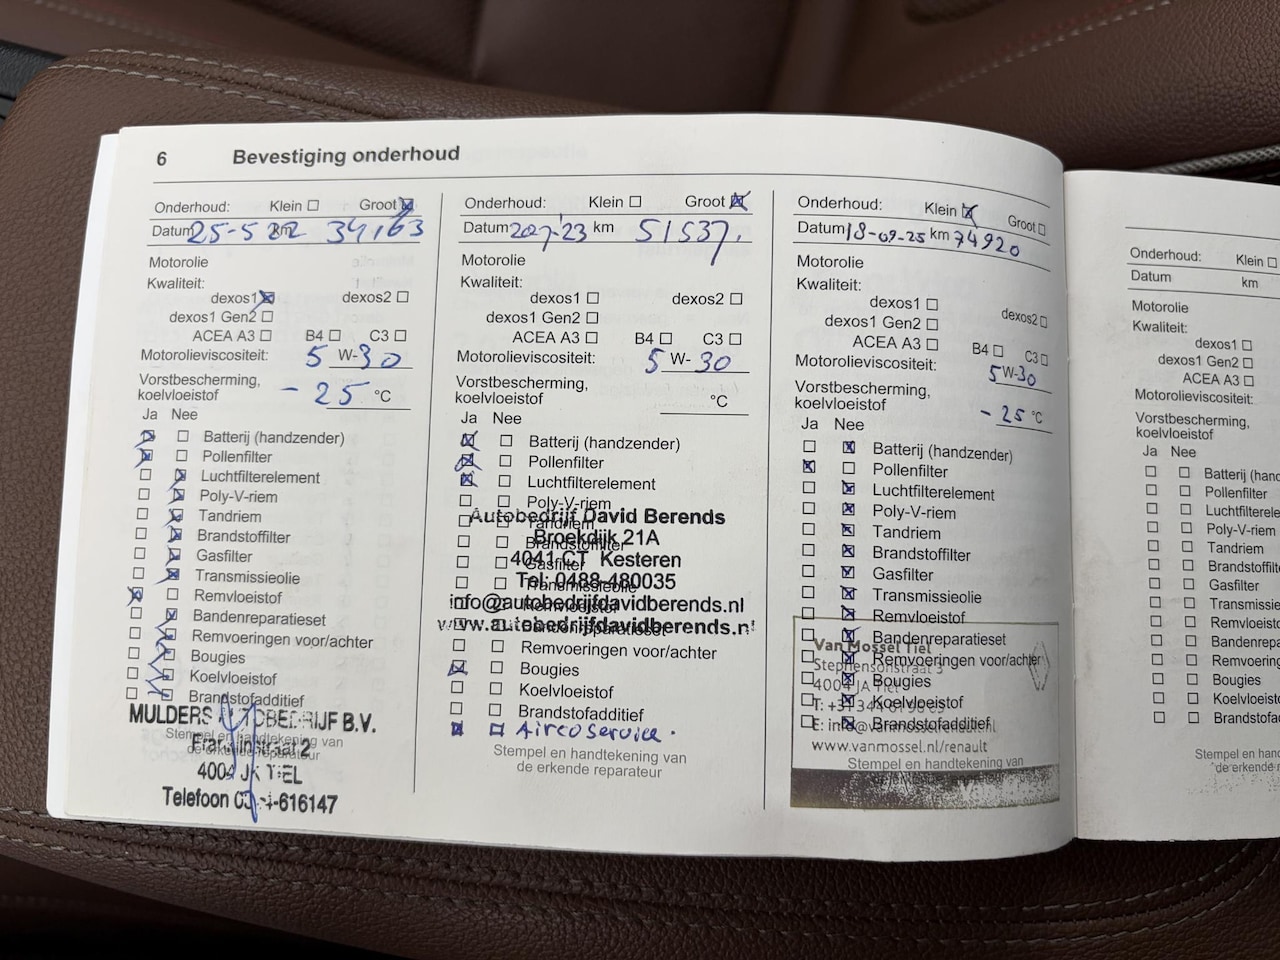 6 Bevestiging onderhoud
Onderhoud: Klein ☐ Groot ☒
Datum 25-5 22 km 34,163
Motorolie
Kwaliteit:
dexos1 ☒ dexos2 ☐
dexos1 Gen2 ☐
ACEA A3 ☐ B4 ☐ C3 ☐
Motorolieviscositeit: 5 W-30
Vorstbescherming,
koelvloeistof - 25 °C
Ja Nee
☒ ☐ Batterij (handzender)
☒ ☐ Pollenfilter
☐ ☒ Luchtfilterelement
☐ ☒ Poly-V-riem
☐ ☒ Tandriem
☐ ☒ Brandstoffilter
☐ ☒ Gasfilter
☐ ☒ Transmissieolie
☒ ☐ Remvloeistof
☐ ☒ Bandenreparatieset
☐ ☒ Remvoeringen voor/achter
☐ ☒ Bougies
☐ ☒ Koelvloeistof
☐ ☒ Brandstofadditief
MULDERS AUTOBEDRIJF B.V.
Stempel en handtekening van
de erkende reparateur
4004 JK TIEL
Telefoon
-616147
Onderhoud: Klein ☐ Groot ☒
Datum 20-7-'23 km 51537,
Motorolie
Kwaliteit:
dexos1 ☐ dexos2 ☐
dexos1 Gen2 ☐
ACEA A3 ☐ B4 ☐ C3 ☐
Motorolieviscositeit: 5 W- 30
Vorstbescherming,
koelvloeistof °C
Ja Nee
☒ ☐ Batterij (handzender)
☒ ☐ Pollenfilter
☒ ☐ Luchtfilterelement
☐ ☐ Poly-V-riem
☐ ☐ Tandriem
☐ ☐ Brandstoffilter
☐ ☐ Gasfilter
☐ ☐ Transmissieolie
☐ ☐ Remvloeistof
☐ ☐ Bandenreparatieset
☐ ☐ Remvoeringen voor/achter
☒ ☐ Bougies
☐ ☐ Koelvloeistof
☐ ☐ Brandstofadditief
☒ ☐ Airco service.
Autobedrijf David Berends
Broekdijk 21A
4041 CT Kesteren
Tel: 0488-480035
info@autobedrijfdavidberends.nl
www.autobedrijfdavidberends.nl
Stempel en handtekening van
de erkende reparateur
Onderhoud: Klein ☒ Groot ☐
Datum 18-09-25 km 74920
Motorolie
Kwaliteit:
dexos1 ☐ dexos2 ☐
dexos1 Gen2 ☐
ACEA A3 ☐ B4 ☐ C3 ☐
Motorolieviscositeit: 5 W-30
Vorstbescherming,
koelvloeistof - 25 °C
Ja Nee
☐ ☒ Batterij (handzender)
☒ ☐ Pollenfilter
☐ ☒ Luchtfilterelement
☐ ☒ Poly-V-riem
☐ ☒ Tandriem
☐ ☒ Brandstoffilter
☐ ☒ Gasfilter
☐ ☒ Transmissieolie
☐ ☒ Remvloeistof
☐ ☒ Bandenreparatieset
☐ ☒ Remvoeringen voor/achter
☐ ☒ Bougies
☐ ☒ Koelvloeistof
☐ ☒ Brandstofadditief
Van Mossel Tiel
Stephensonstraat 3
4004 JA Tiel
www.vanmossel.nl/renault
Stempel en handtekening van
de erkende reparateur
Onderhoud: Klein ☐
Datum km
Motorolie
Kwaliteit:
dexos1 ☐
dexos1 Gen2 ☐
ACEA A3 ☐
Motorolieviscositeit:
Vorstbescherming,
koelvloeistof
Ja Nee
☐ ☐ Batterij (hand
☐ ☐ Pollenfilter
☐ ☐ Luchtfilterele
☐ ☐ Poly-V-riem
☐ ☐ Tandriem
☐ ☐ Brandstoffilter
☐ ☐ Gasfilter
☐ ☐ Transmissieo
☐ ☐ Remvloeistof
☐ ☐ Bandenrepara
☐ ☐ Remvoeringen
☐ ☐ Bougies
☐ ☐ Koelvloeistof
☐ ☐ Brandstofad
Stempel en hand
de erkende r